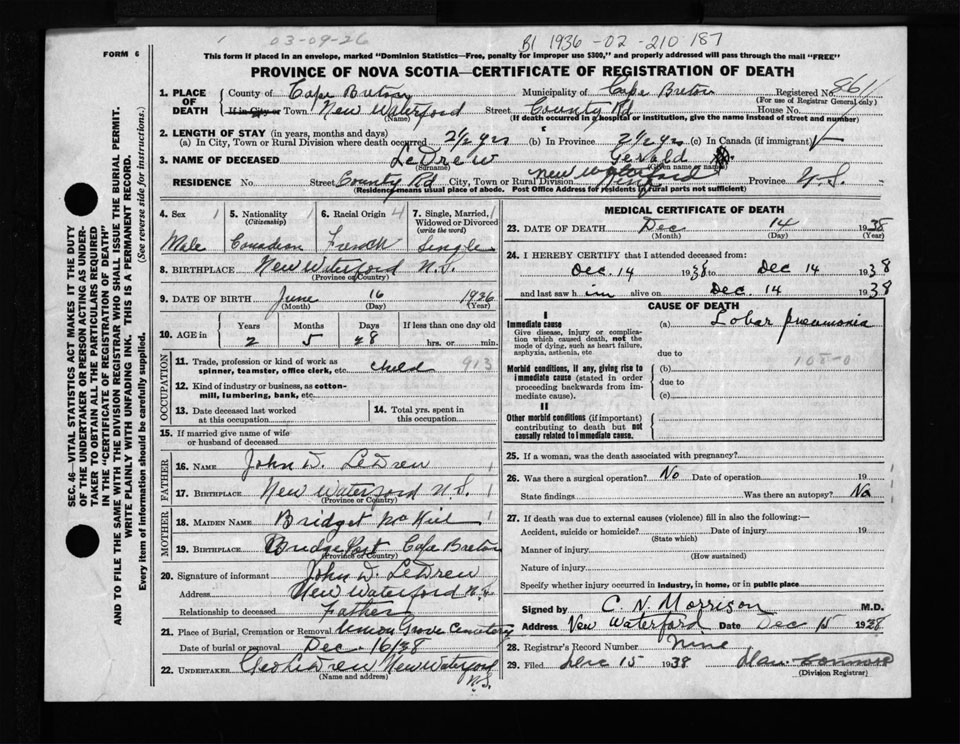 03-09-26
BI 1936-02-210187
FORM 6
This form if placed in an envelope, marked "Dominion Statistics—Free, penalty for improper use $300," and properly addressed will pass through the mail "FREE"
PROVINCE OF NOVA SCOTIA—CERTIFICATE OF REGISTRATION OF DEATH
1. PLACE OF DEATH County of Cape Breton Municipality of Cape Breton Registered No. 8611
(For use of Registrar General only)
If in City or Town New Waterford Street County Rd House No.
(Name) (If death occurred in a hospital or institution, give the name instead of street and number)
2. LENGTH OF STAY (in years, months and days)
(a) In City, Town or Rural Division where death occurred 2½ yrs (b) In Province 2½ yrs (c) In Canada (if immigrant)
3. NAME OF DECEASED LeDrew Gerald
(Surname) (Given name or names)
RESIDENCE No. Street County Rd City, Town or Rural Division New Waterford Province N.S.
(Residence means usual place of abode. Post Office Address for residents in rural parts not sufficient)
4. Sex Male
5. Nationality (Citizenship) Canadian
6. Racial Origin 4 French
7. Single, Married, Widowed or Divorced (write the word) Single
8. BIRTHPLACE New Waterford N.S.
(Province or Country)
9. DATE OF BIRTH June 16 1936
(Month) (Day) (Year)
10. AGE in Years Months Days If less than one day
2 5 28 hrs. or min.
OCCUPATION
11. Trade, profession or kind of work as spinner, teamster, office clerk, etc. child 913
12. Kind of industry or business, as cotton-mill, lumbering, bank, etc.
13. Date deceased last worked at this occupation
14. Total yrs. spent in this occupation
15. If married give name of wife or husband of deceased
FATHER
16. NAME John D. LeDrew
17. BIRTHPLACE New Waterford N.S.
(Province or Country)
MOTHER
18. MAIDEN NAME Bridget
19. BIRTHPLACE Bridgeport Cape Breton
(Province or Country)
20. Signature of informant John D. LeDrew
Address New Waterford N.S.
Relationship to deceased Father
21. Place of Burial, Cremation or Removal Union Grove Cemetery
Date of burial or removal Dec 16/38
22. UNDERTAKER Geo LeDrew New Waterford N.S.
(Name and address)
MEDICAL CERTIFICATE OF DEATH
23. DATE OF DEATH Dec 14 1938
(Month) (Day) (Year)
24. I HEREBY CERTIFY that I attended deceased from:
Dec. 14 1938 to Dec 14 1938
and last saw him alive on Dec. 14 1938
CAUSE OF DEATH
I
Immediate cause (a) Lobar pneumonia
Give disease, injury or complication which caused death, not the mode of dying, such as heart failure, asphyxia, asthenia, etc
due to
Morbid conditions, if any, giving rise to immediate cause (stated in order proceeding backwards from immediate cause). (b)
due to
(c)
II
Other morbid conditions (if important) contributing to death but not causally related to immediate cause.
25. If a woman, was the death associated with pregnancy?
26. Was there a surgical operation? No Date of operation 19
State findings Was there an autopsy? No
27. If death was due to external causes (violence) fill in also the following:—
Accident, suicide or homicide? Date of injury 19
(State which)
Manner of injury
(How sustained)
Nature of injury
Specify whether injury occurred in industry, in home, or in public place
Signed by C. N. Morrison M.D.
Address New Waterford Date Dec 15 1938
28. Registrar's Record Number Nine
29. Filed Dec 15 1938
(Division Registrar)
SEC. 46—VITAL STATISTICS ACT MAKES IT THE DUTY
OF THE UNDERTAKER OR PERSON ACTING AS UNDER-
TAKER TO OBTAIN ALL THE PARTICULARS REQUIRED
IN THE "CERTIFICATE OF REGISTRATION OF DEATH"
AND TO FILE THE SAME WITH THE DIVISION REGISTRAR WHO SHALL ISSUE THE BURIAL PERMIT.
WRITE PLAINLY WITH UNFADING INK. THIS IS A PERMANENT RECORD.
Every item of information should be carefully supplied. (See reverse side for instructions.)